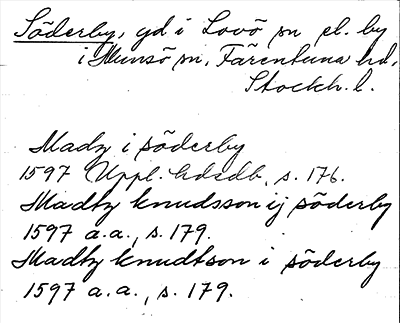 Söderby, gd i Lovö sn el. by
i Munsö sn, Färentuna hd,
Stockh. l.
Madz i söderby
1597 Uppl. hdrdb, s. 176.
Madtz knudsson ij söderby
1597 a.a., s. 179.
Madtz knudtson i söderby
1597 a.a., s. 179.